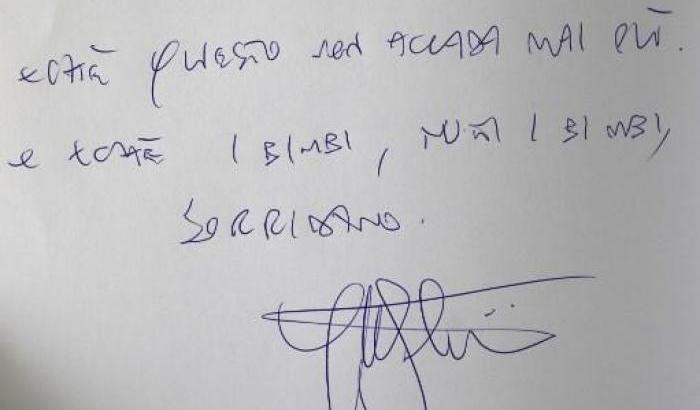 questo non accada mai più.
e i bimbi, tutti i bimbi,
sorridano.